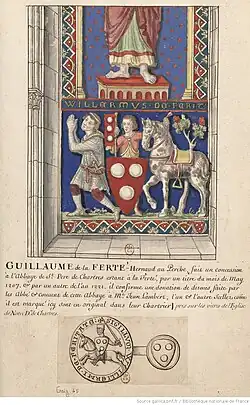 WILLERMVS·DA·FERTE
GUILLAUME de la FERTE-Hernaud au Perche, fait un concession
à l'Abbaye de St. Pere de Chartres estant à la Ferté, par un titre du mois de May
1207, & par un autre de l'an 1221. il confirme une donation de dismes faite par
les Abbé & Couvent de cette Abbaye à Me. Jean Lambert; l'un & l'autre Scellez, comme
il est marqué icy sont en original dans leur Chartrier; pris sur les vitres de l'Eglise
de Notre De. de Chartres.
Gaig. 45
Source gallica.bnf.fr / Bibliothèque nationale de France